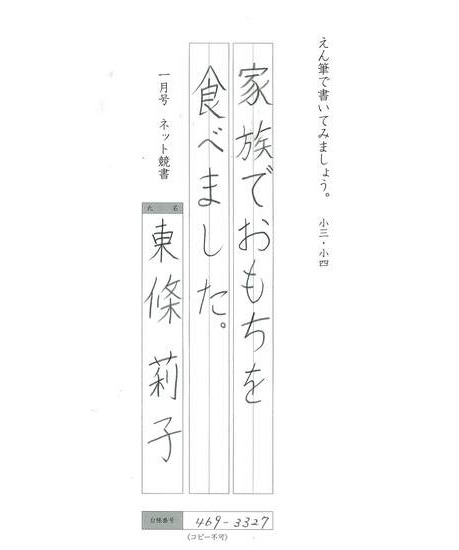 えん筆で書いてみましょう。 小三・小四
家族でおもちを
食べました。
一月号 ネット競書
氏 名
東條 莉子
白帳番号 469-3327
(コピー不可)